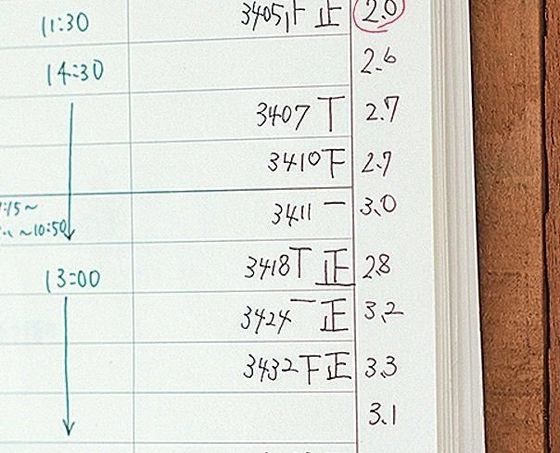 11:30 3405 止 正 2.0
14:30 2.6
3407 丅 2.7
3410 下 2.7
:15～ 3411 一 3.0
～10:50
13:00 3418 丅 正 2.8
3424 一 正 3.2
3432 下 正 3.3
3.1